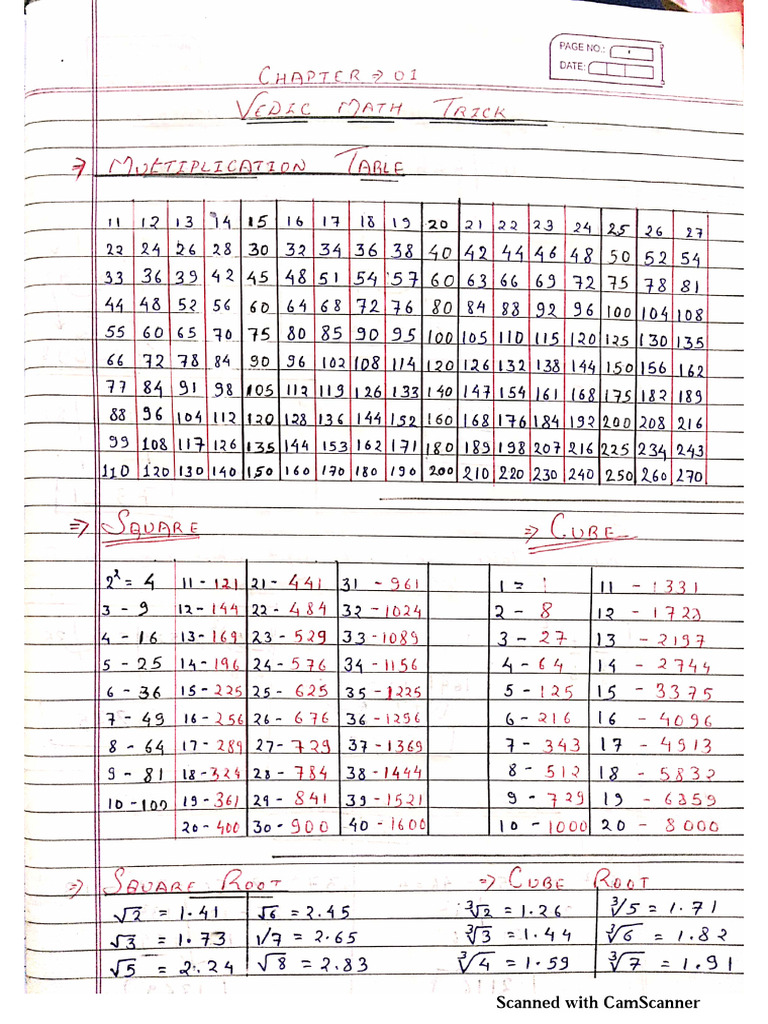 PAGE NO.:
DATE:
CHAPTER ⇒ 01
VEDIC MATH TRICK
⇒ MULTIPLICATION TABLE
11 12 13 14 15 16 17 18 19 20 21 22 23 24 25 26 27
22 24 26 28 30 32 34 36 38 40 42 44 46 48 50 52 54
33 36 39 42 45 48 51 54 57 60 63 66 69 72 75 78 81
44 48 52 56 60 64 68 72 76 80 84 88 92 96 100 104 108
55 60 65 70 75 80 85 90 95 100 105 110 115 120 125 130 135
66 72 78 84 90 96 102 108 114 120 126 132 138 144 150 156 162
77 84 91 98 105 112 119 126 133 140 147 154 161 168 175 182 189
88 96 104 112 120 128 136 144 152 160 168 176 184 192 200 208 216
99 108 117 126 135 144 153 162 171 180 189 198 207 216 225 234 243
110 120 130 140 150 160 170 180 190 200 210 220 230 240 250 260 270
⇒ SQUARE ⇒ CUBE
2² = 4 11 - 121 21 - 441 31 - 961 1 = 1 11 - 1331
3 - 9 12 - 144 22 - 484 32 - 1024 2 - 8 12 - 1728
4 - 16 13 - 169 23 - 529 33 - 1089 3 - 27 13 - 2197
5 - 25 14 - 196 24 - 576 34 - 1156 4 - 64 14 - 2744
6 - 36 15 - 225 25 - 625 35 - 1225 5 - 125 15 - 3375
7 - 49 16 - 256 26 - 676 36 - 1296 6 - 216 16 - 4096
8 - 64 17 - 289 27 - 729 37 - 1369 7 - 343 17 - 4913
9 - 81 18 - 324 28 - 784 38 - 1444 8 - 512 18 - 5832
10 - 100 19 - 361 29 - 841 39 - 1521 9 - 729 19 - 6859
20 - 400 30 - 900 40 - 1600 10 - 1000 20 - 8000
⇒ SQUARE ROOT ⇒ CUBE ROOT
√2 = 1.41 √6 = 2.45 ∛2 = 1.26 ∛5 = 1.71
√3 = 1.73 √7 = 2.65 ∛3 = 1.44 ∛6 = 1.82
√5 = 2.24 √8 = 2.83 ∛4 = 1.59 ∛7 = 1.91
Scanned with CamScanner